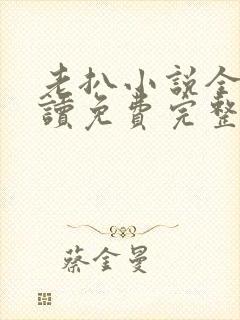 老扒小说全
讀免費完整
蔡金曼